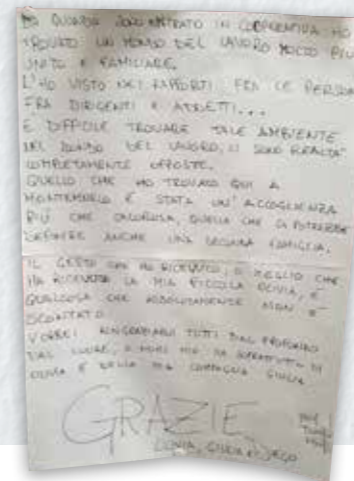 DA QUANDO SONO ENTRATO IN COOPERATIVA HO
TROVATO UN MONDO DEL LAVORO MOLTO PIÙ
UNITO E FAMILIARE.
L'HO VISTO NEI RAPPORTI FRA LE PERSONE
FRA DIRIGENTI E ADDETTI...
È DIFFICILE TROUARE TALE AMBIENTE
NEL MONDO DEL LAVORO, CI SONO REALTÀ
COMPLETAMENTE OPPOSTE.
QUELLO CHE HO TROVATO QUI A
MONTEMURLO È STATA UN'ACCOGLIENZA
PIÙ CHE CALOROSA, QUELLA CHE SI POTREBBE
DEFINIRE ANCHE UNA SECONDA FAMIGLIA.
IL GESTO CHE HO RICEVUTO, O MEGLIO CHE
HA RICEVUTO LA MIA PICCOLA OLIVIA, È
QUALCOSA CHE ASSOLUTAMENTE NON È
SCONTATO.
VORREI RINGRAZIARVI TUTTI DAL PROFONDO
DEL CUORE, A NOME MIO MA SOPRATTUTTO DI
OLIVIA E DELLA MIA COMPAGNA GIULIA
GRAZIE
OLIVIA, GIULIA E DIEGO